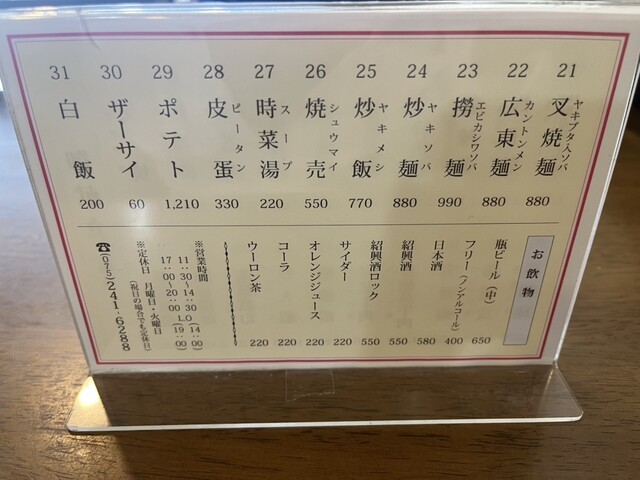 21 叉焼麺 ヤキブタ入ソバ 880
22 広東麺 カントンメン 880
23 撈麺 エビカシワソバ 990
24 炒麺 ヤキソバ 880
25 炒飯 ヤキメシ 770
26 焼売 シュウマイ 550
27 時菜湯 スープ 220
28 皮蛋 ピータン 330
29 ポテト 1,210
30 ザーサイ 60
31 白飯 200
お飲物
瓶ビール(中) 650
フリー(ノンアルコール) 400
日本酒 580
紹興酒 550
紹興酒ロック 550
サイダー 220
オレンジジュース 220
コーラ 220
ウーロン茶 220
※営業時間
11:30~14:30 (14:00)
17:00~20:00 L.O(19:00)
※定休日 月曜日・火曜日
(祝日の場合でも定休日)
☎(075)241-6288